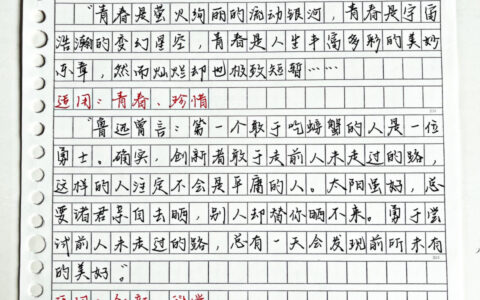 “青春是萤火绚丽的流动银河，青春是宇宙
浩瀚的变幻星空，青春是人生丰富多彩的美妙
乐章，然而灿烂却也极致短暂……
适用：青春、珍惜
“鲁迅曾言：第一个敢于吃螃蟹的人是一位
勇士。确实，创新者敢于走前人未走过的路，
这样的人注定不会是平庸的人。太阳虽好，总
要诸君亲自去晒，别人却替你晒不来。勇于尝
试前人未走过的路，总有一天会发现前所未有
的美好”。